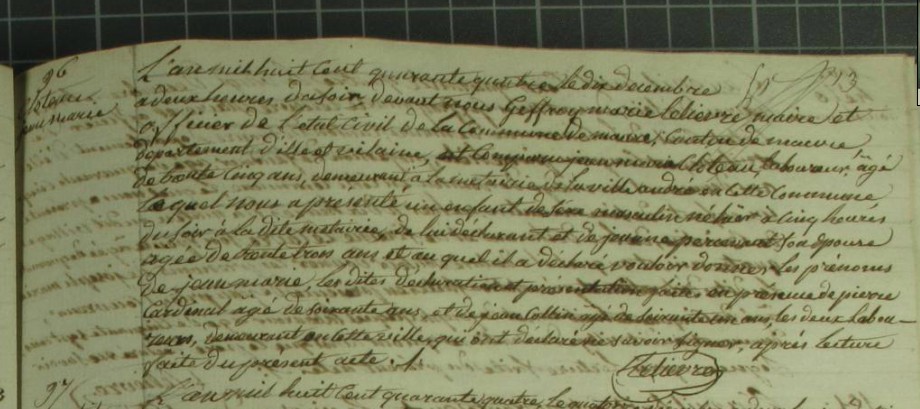 96
Cloteau
jean marie
L'an mil huit Cent quarante quatre le dix décembre
a deux heures du soir, devant nous Geffroy marie lelievre maire et
officier de l'état Civil de la Commune de maure, Canton de maure,
département d'ille et vilaine, est Comparu jean marie Cloteau, laboureur, âgé
de trente Cinq ans, demeurant à la métairie de la ville andré en Cette Commune,
Lequel nous a présenté un enfant de sexe masculin né hier à Cinq heures
du soir à la dite métairie, de lui déclarant et de jeanne son épouse
âgée de trente trois ans et au quel il a déclaré vouloir donner les prénoms
de jean marie, les dites déclaration et présentation faites en présence de pierre
Cardinal âgé de soixante ans, et de jean Collin âgé de soixante ans, les deux labou-
reurs, demeurant en Cette ville, qui ont déclaré ne savoir signer, après lecture
faite du présent acte.
Lelievre
97
L'an mil huit Cent quarante quatre, le quatorze